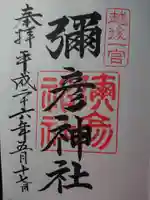 越後一宮
彌彦神社
奉拝
平成二十六年五月十一日